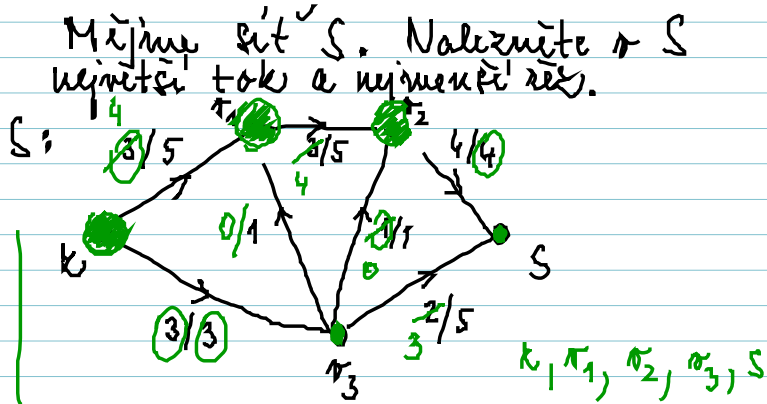 Mějme síť S. Nalezněte v S
největší tok a nejmenší řez.
4 v1 v2
S: 3/5 3/5 4/4
4
k 0/1 1/1 S
0
3/3 2/5
3
v3 k, v1, v2, v3, s